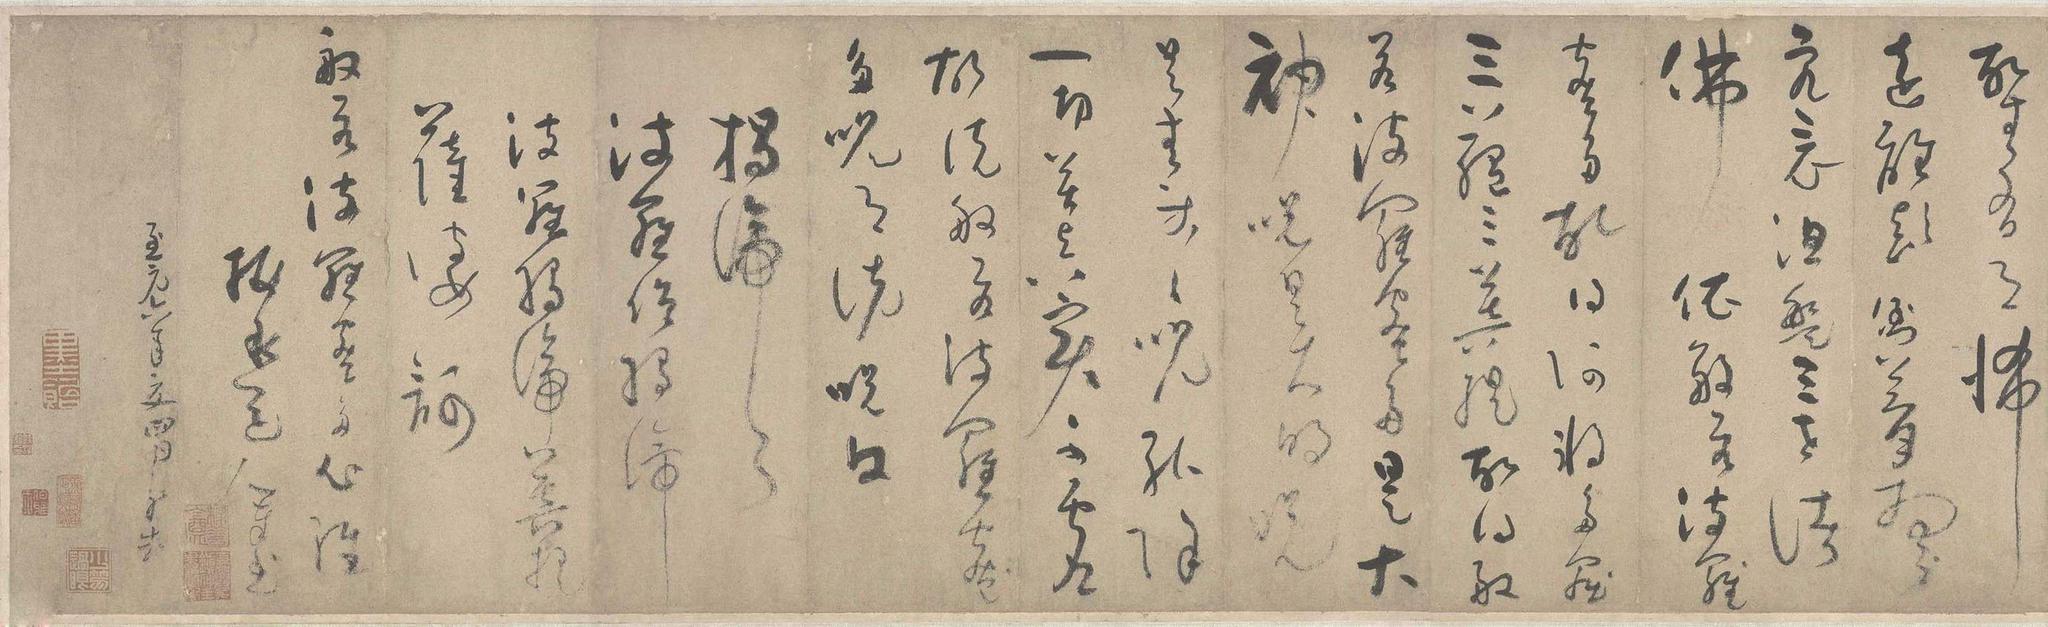 故無有恐怖
遠離顛倒夢想
究竟涅槃三世諸
佛 依般若波羅
蜜多故得阿耨多羅
三藐三菩提故知般
若波羅蜜多是大
神咒是大明咒
是無等等咒能除
一切苦真實不虛
故說般若波羅蜜
多咒即說咒曰
揭諦揭諦
波羅僧揭諦
波羅揭諦菩提
薩婆訶
般若波羅蜜多心經
梅花道人 書
至元六年夏四月